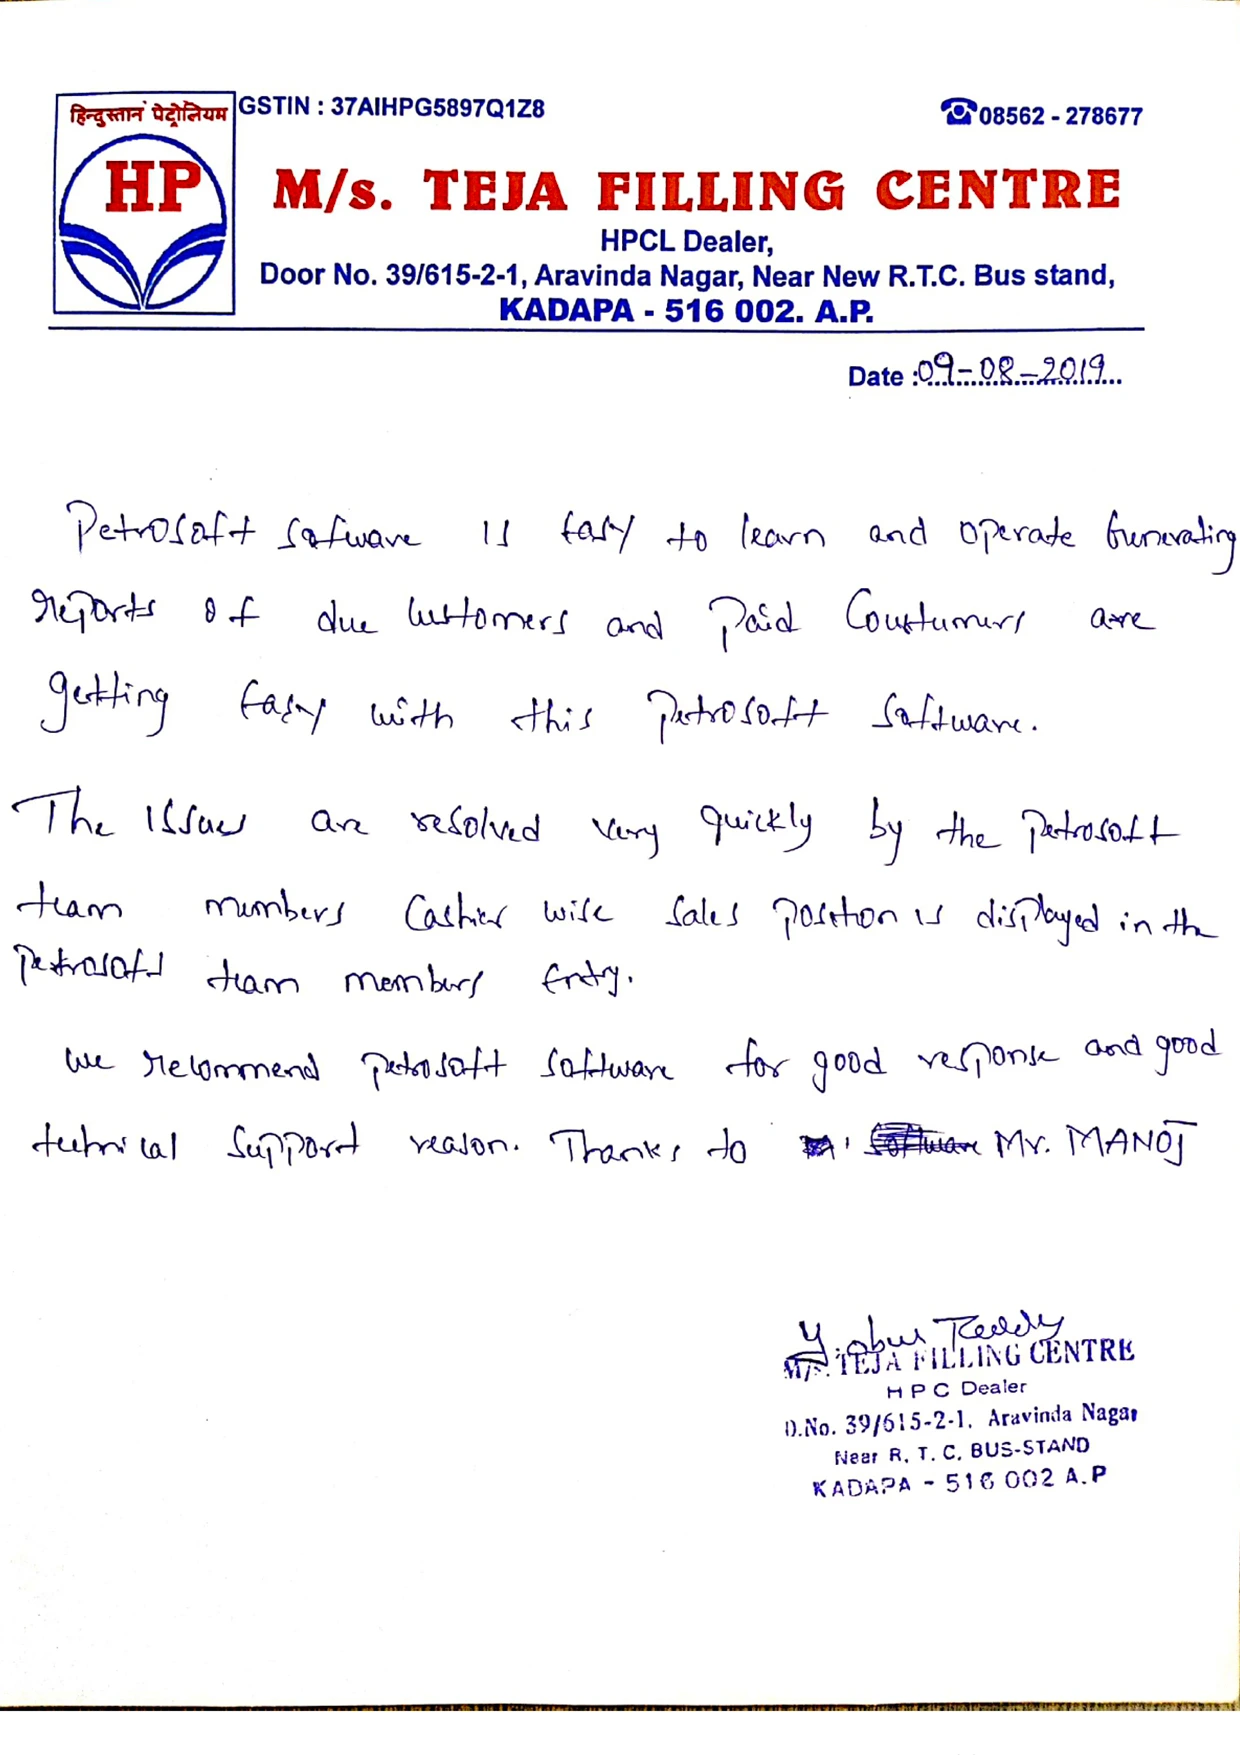 हिन्दुस्तान पेट्रोलियम
HP
GSTIN : 37AIHPG5897Q1Z8
08562 - 278677
M/s. TEJA FILLING CENTRE
HPCL Dealer,
Door No. 39/615-2-1, Aravinda Nagar, Near New R.T.C. Bus stand,
KADAPA - 516 002. A.P.
Date : 09-08-2019
Petrosoft safware is Easy to learn and operate Generating
reports of due Customers and Paid Coustumers are
getting Easy with this Petrosoft Software.
The issues are resolved very quickly by the Petrosoft
team members Cashier wise sales position is displayed in the
Petrosoft team members Entry.
We recommend petrosoft software for good response and good
technical support reason. Thanks to Mr. MANOJ
Reddy
M/s. TEJA FILLING CENTRE
H P C Dealer
D.No. 39/615-2-1, Aravinda Nagar
Near R. T. C. BUS-STAND
KADAPA - 516 002 A.P